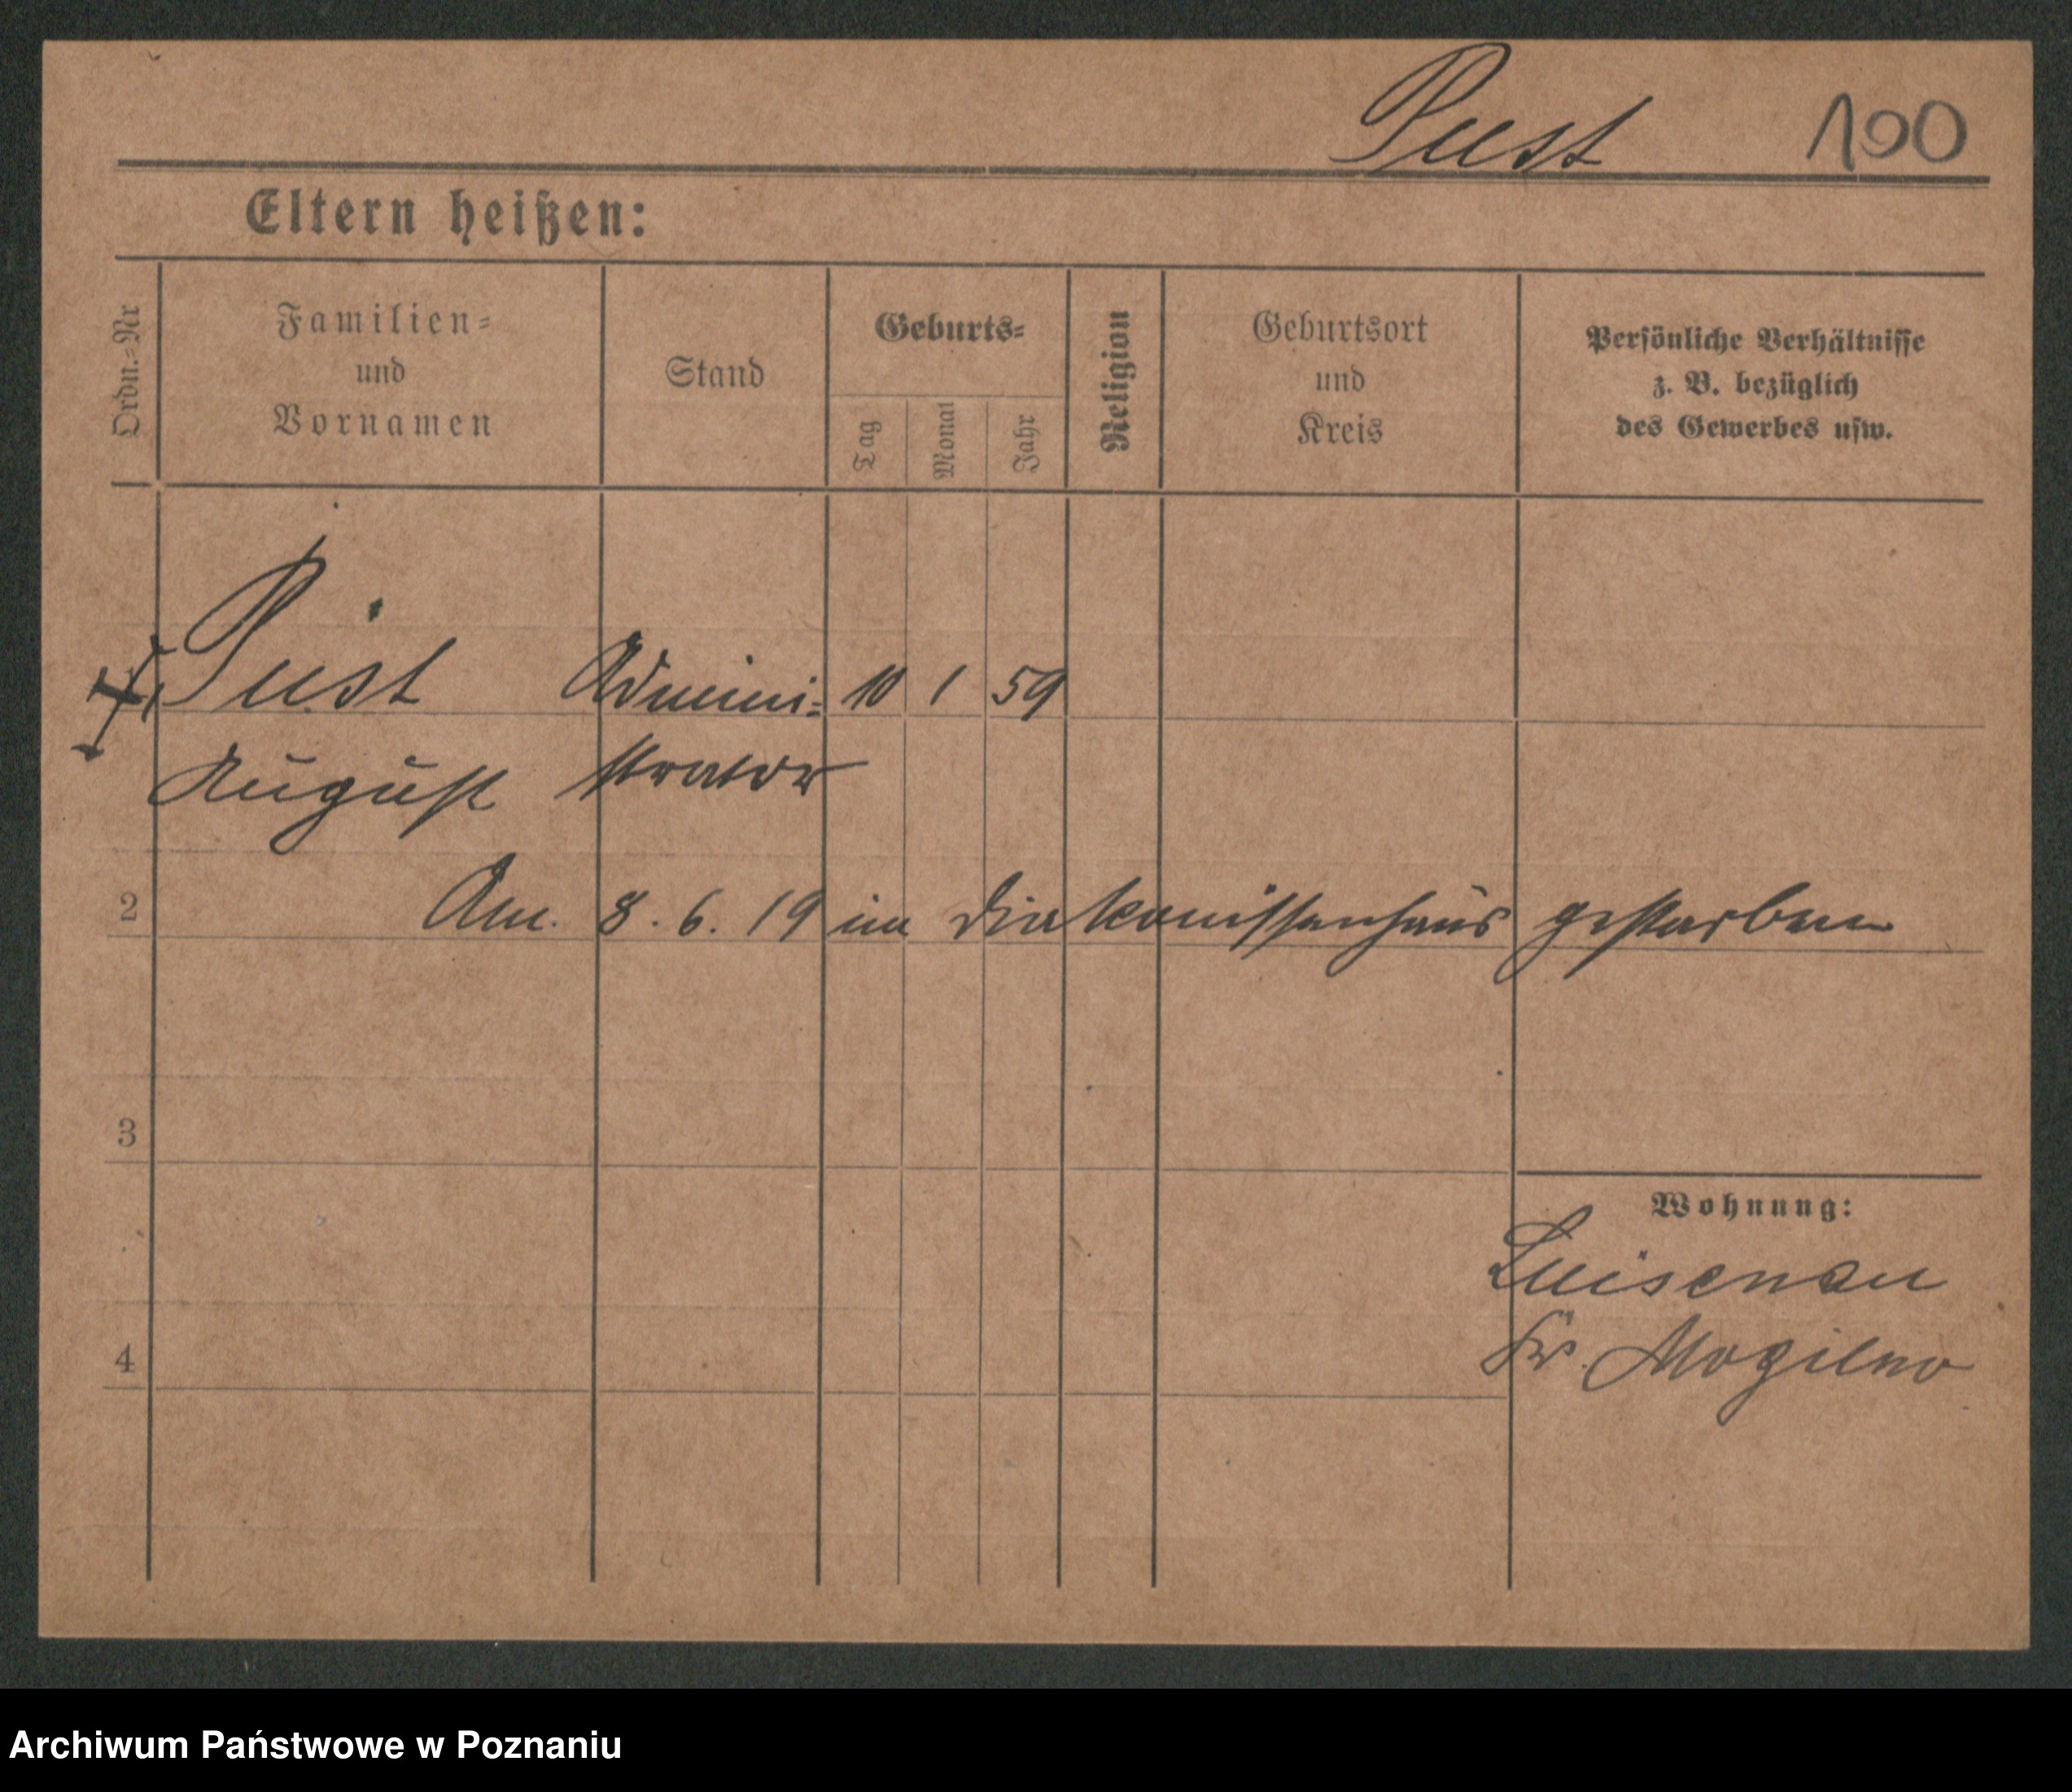 Pust 100
Eltern heißen:
Ordn.=Nr
Familien=
und
Vornamen
Stand
Geburts=
Tag
Monat
Jahr
Religion
Geburtsort
und
Kreis
Persönliche Verhältnisse
z. B. bezüglich
des Gewerbes usw.
Pust Admini= 10 1 59
August strator
2 Am. 8. 6. 19 im Diakonissenhaus gestorben
3
Wohnung:
Luisenau
Kr. Mogilno
4
Archiwum Państwowe w Poznaniu